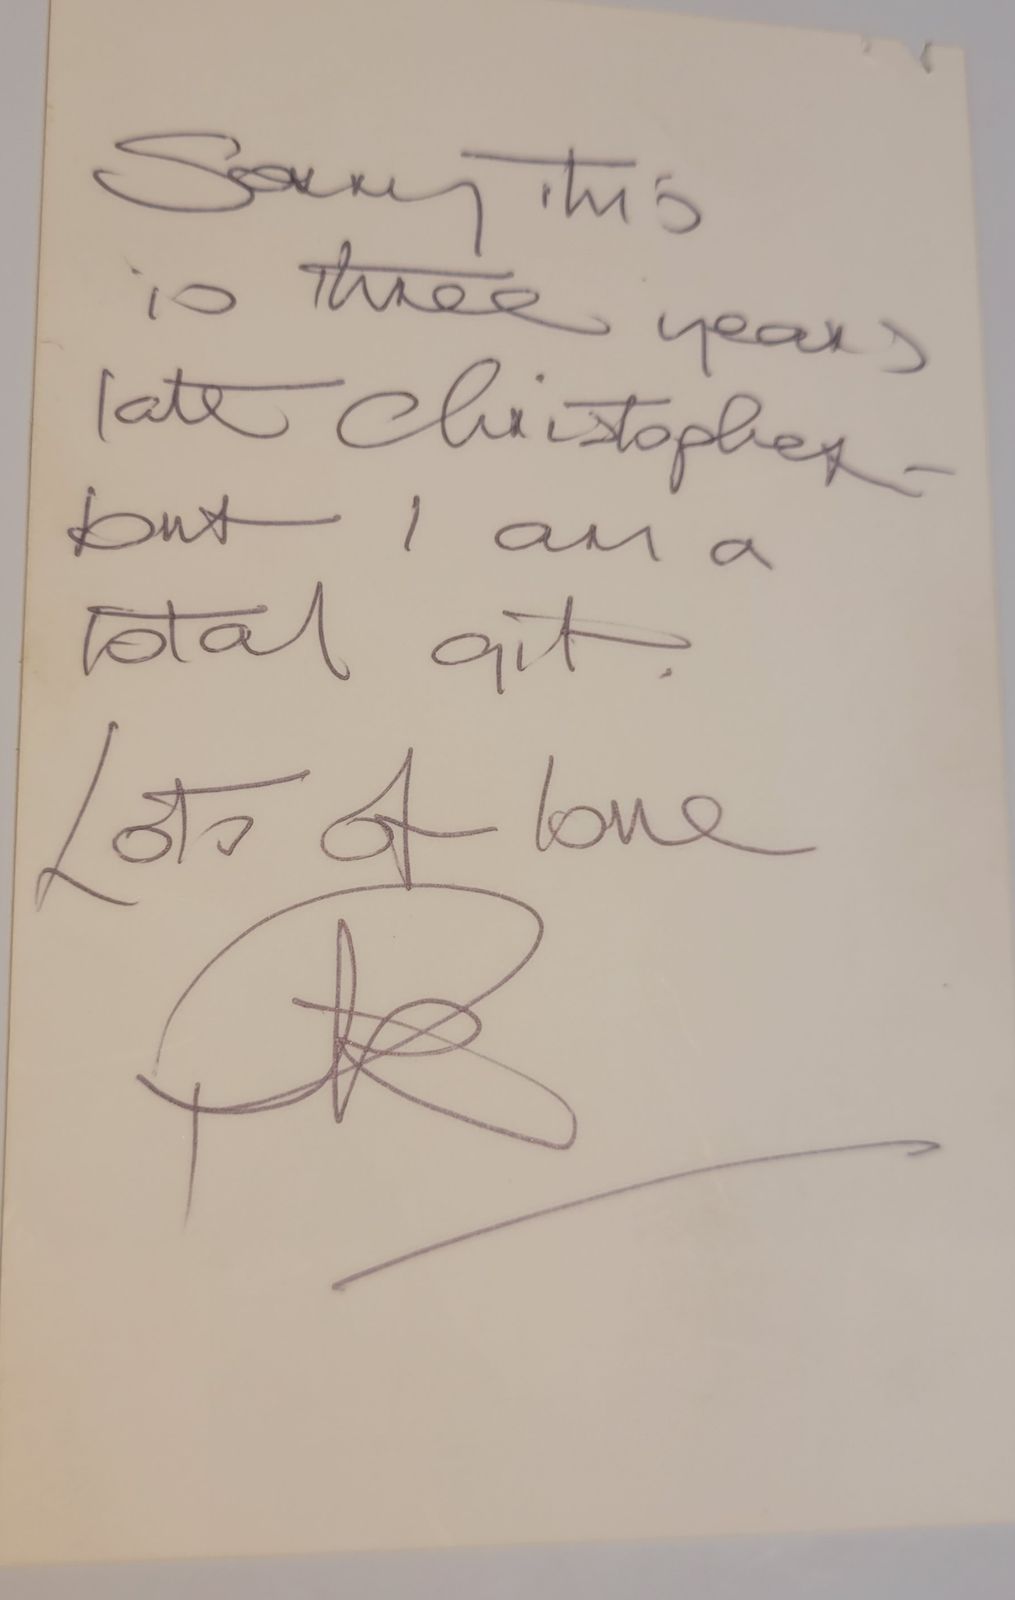 Sorry this
is three years
late Christopher -
but I am a
total git.
Lots of love